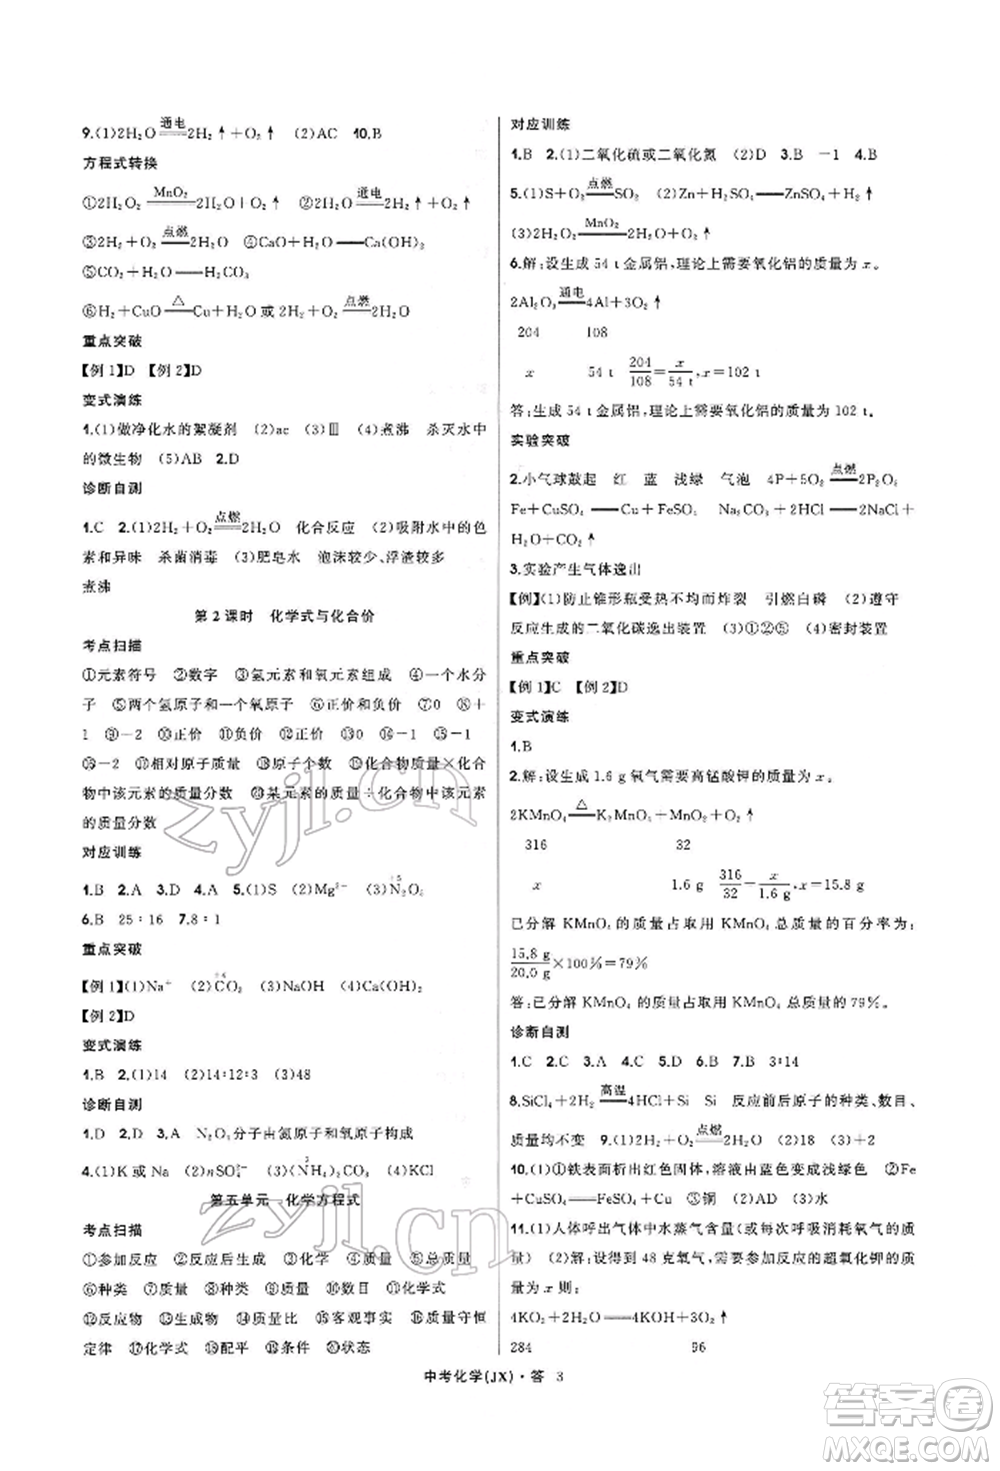 9.(1)2H₂O \xlongequal{通电} 2H₂↑+O₂↑ (2)AC 10.B
方程式转换
①2H₂O₂ \xlongequal{MnO₂} 2H₂O+O₂↑ ②2H₂O \xlongequal{通电} 2H₂↑+O₂↑
③2H₂+O₂ \xlongequal{点燃} 2H₂O ④CaO+H₂O══Ca(OH)₂
⑤CO₂+H₂O══H₂CO₃
⑥H₂+CuO \xlongequal{△} Cu+H₂O 或 2H₂+O₂ \xlongequal{点燃} 2H₂O
重点突破
【例1】D 【例2】D
变式演练
1.(1)做净化水的絮凝剂 (2)ac (3)Ⅲ (4)煮沸 杀灭水中
的微生物 (5)AB 2.D
诊断自测
1.C 2.(1)2H₂+O₂ \xlongequal{点燃} 2H₂O 化合反应 (2)吸附水中的色
素和异味 杀菌消毒 (3)肥皂水 泡沫较少、浮渣较多
煮沸
第2课时 化学式与化合价
考点扫描
①元素符号 ②数字 ③氢元素和氧元素组成 ④一个水分
子 ⑤两个氢原子和一个氧原子 ⑥正价和负价 ⑦0 ⑧+
1 ⑨-2 ⑩正价 ⑪负价 ⑫0 ⑬正价 ⑭+1
⑮-2 ⑯相对原子质量 ⑰原子个数 ⑱化合物质量×化合
物中该元素的质量分数 ⑳某元素的质量÷化合物中该元素
的质量分数
对应训练
1.B 2.A 3.D 4.A 5.(1)S (2)Mg²⁺ (3)\overset{+5}{N}₂O₅
6.B 25:16 7.8:1
重点突破
【例1】(1)Na⁺ (2)\overset{+4}{C}O₂ (3)NaOH (4)Ca(OH)₂
【例2】D
变式演练
1.B 2.(1)14 (2)14:12:3 (3)48
诊断自测
1.D 2.D 3.A N₂O₃分子由氮原子和氧原子构成
4.(1)K或Na (2)nSO₄²⁻ (3)(\overset{-3}{N}H₄)₂CO₃ (4)KCl
第五单元 化学方程式
考点扫描
①参加反应 ②反应后生成 ③化学 ④质量 ⑤总质量
⑥种类 ⑦质量 ⑧种类 ⑨质量 ⑩数目 ⑪化学式
⑫反应物 ⑬生成物 ⑭条件 ⑮客观事实 ⑯质量守恒
定律 ⑰化学式 ⑱配平 ⑲条件 ⑳状态
对应训练
1.B 2.(1)二氧化硫或二氧化氮 (2)D 3.B -1 4.B
5.(1)S+O₂ \xlongequal{点燃} SO₂ (2)Zn+H₂SO₄══ZnSO₄+H₂↑
(3)2H₂O₂ \xlongequal{MnO₂} 2H₂O+O₂↑
6.解:设生成 54 t 金属铝,理论上需要氧化铝的质量为 x。
2Al₂O₃ \xlongequal{通电} 4Al+3O₂↑
204 108
x 54 t 204/108=x/54 t,x=102 t
答:生成 54 t 金属铝,理论上需要氧化铝的质量为 102 t。
实验突破
2.小气球鼓起 红 蓝 浅绿 气泡 4P+5O₂ \xlongequal{点燃} 2P₂O₅
Fe+CuSO₄══Cu+FeSO₄ Na₂CO₃+2HCl══2NaCl+H₂O
+CO₂↑
3.实验产生气体逸出
【例】(1)防止锥形瓶受热不均而炸裂 引燃白磷 (2)遵守
反应生成的二氧化碳逸出装置 (3)①②⑤ (4)密封装置
重点突破
【例1】C 【例2】D
变式演练
1.B
2.解:设生成 1.6 g 氧气需要高锰酸钾的质量为 x。
2KMnO₄ \xlongequal{△} K₂MnO₄+MnO₂+O₂↑
316 32
x 1.6 g 316/32=x/1.6 g,x=15.8 g
已分解 KMnO₄ 的质量占取用 KMnO₄ 总质量的百分率为:
15.8 g/20.0 g×100%=79%
答:已分解 KMnO₄ 的质量占取用 KMnO₄ 总质量的 79%。
诊断自测
1.C 2.C 3.A 4.D 5.D 6.B 7.B 3:14
8.SiCl₄+2H₂ \xlongequal{高温} 4HCl+Si Si 反应前后原子的种类、数目、
质量均不变 9.(1)2H₂+O₂ \xlongequal{点燃} 2H₂O (2)18 (3)+2
10.(1)①铁表面析出红色固体,溶液由蓝色变成浅绿色 ②Fe
+CuSO₄══FeSO₄+Cu ③铜 (2)AD (3)水
11.(1)人体呼出气体中水蒸气含量(或每次呼吸消耗氧气的质
量) (2)解:设得到 48 克氧气,需要参加反应的超氧化钾的质
量为 x 则:
4KO₂+2H₂O══4KOH+3O₂↑
284 96
中考化学(JX)·答 3
zyjl.cn
zyjl.cn
答案圈
MXQE.COM